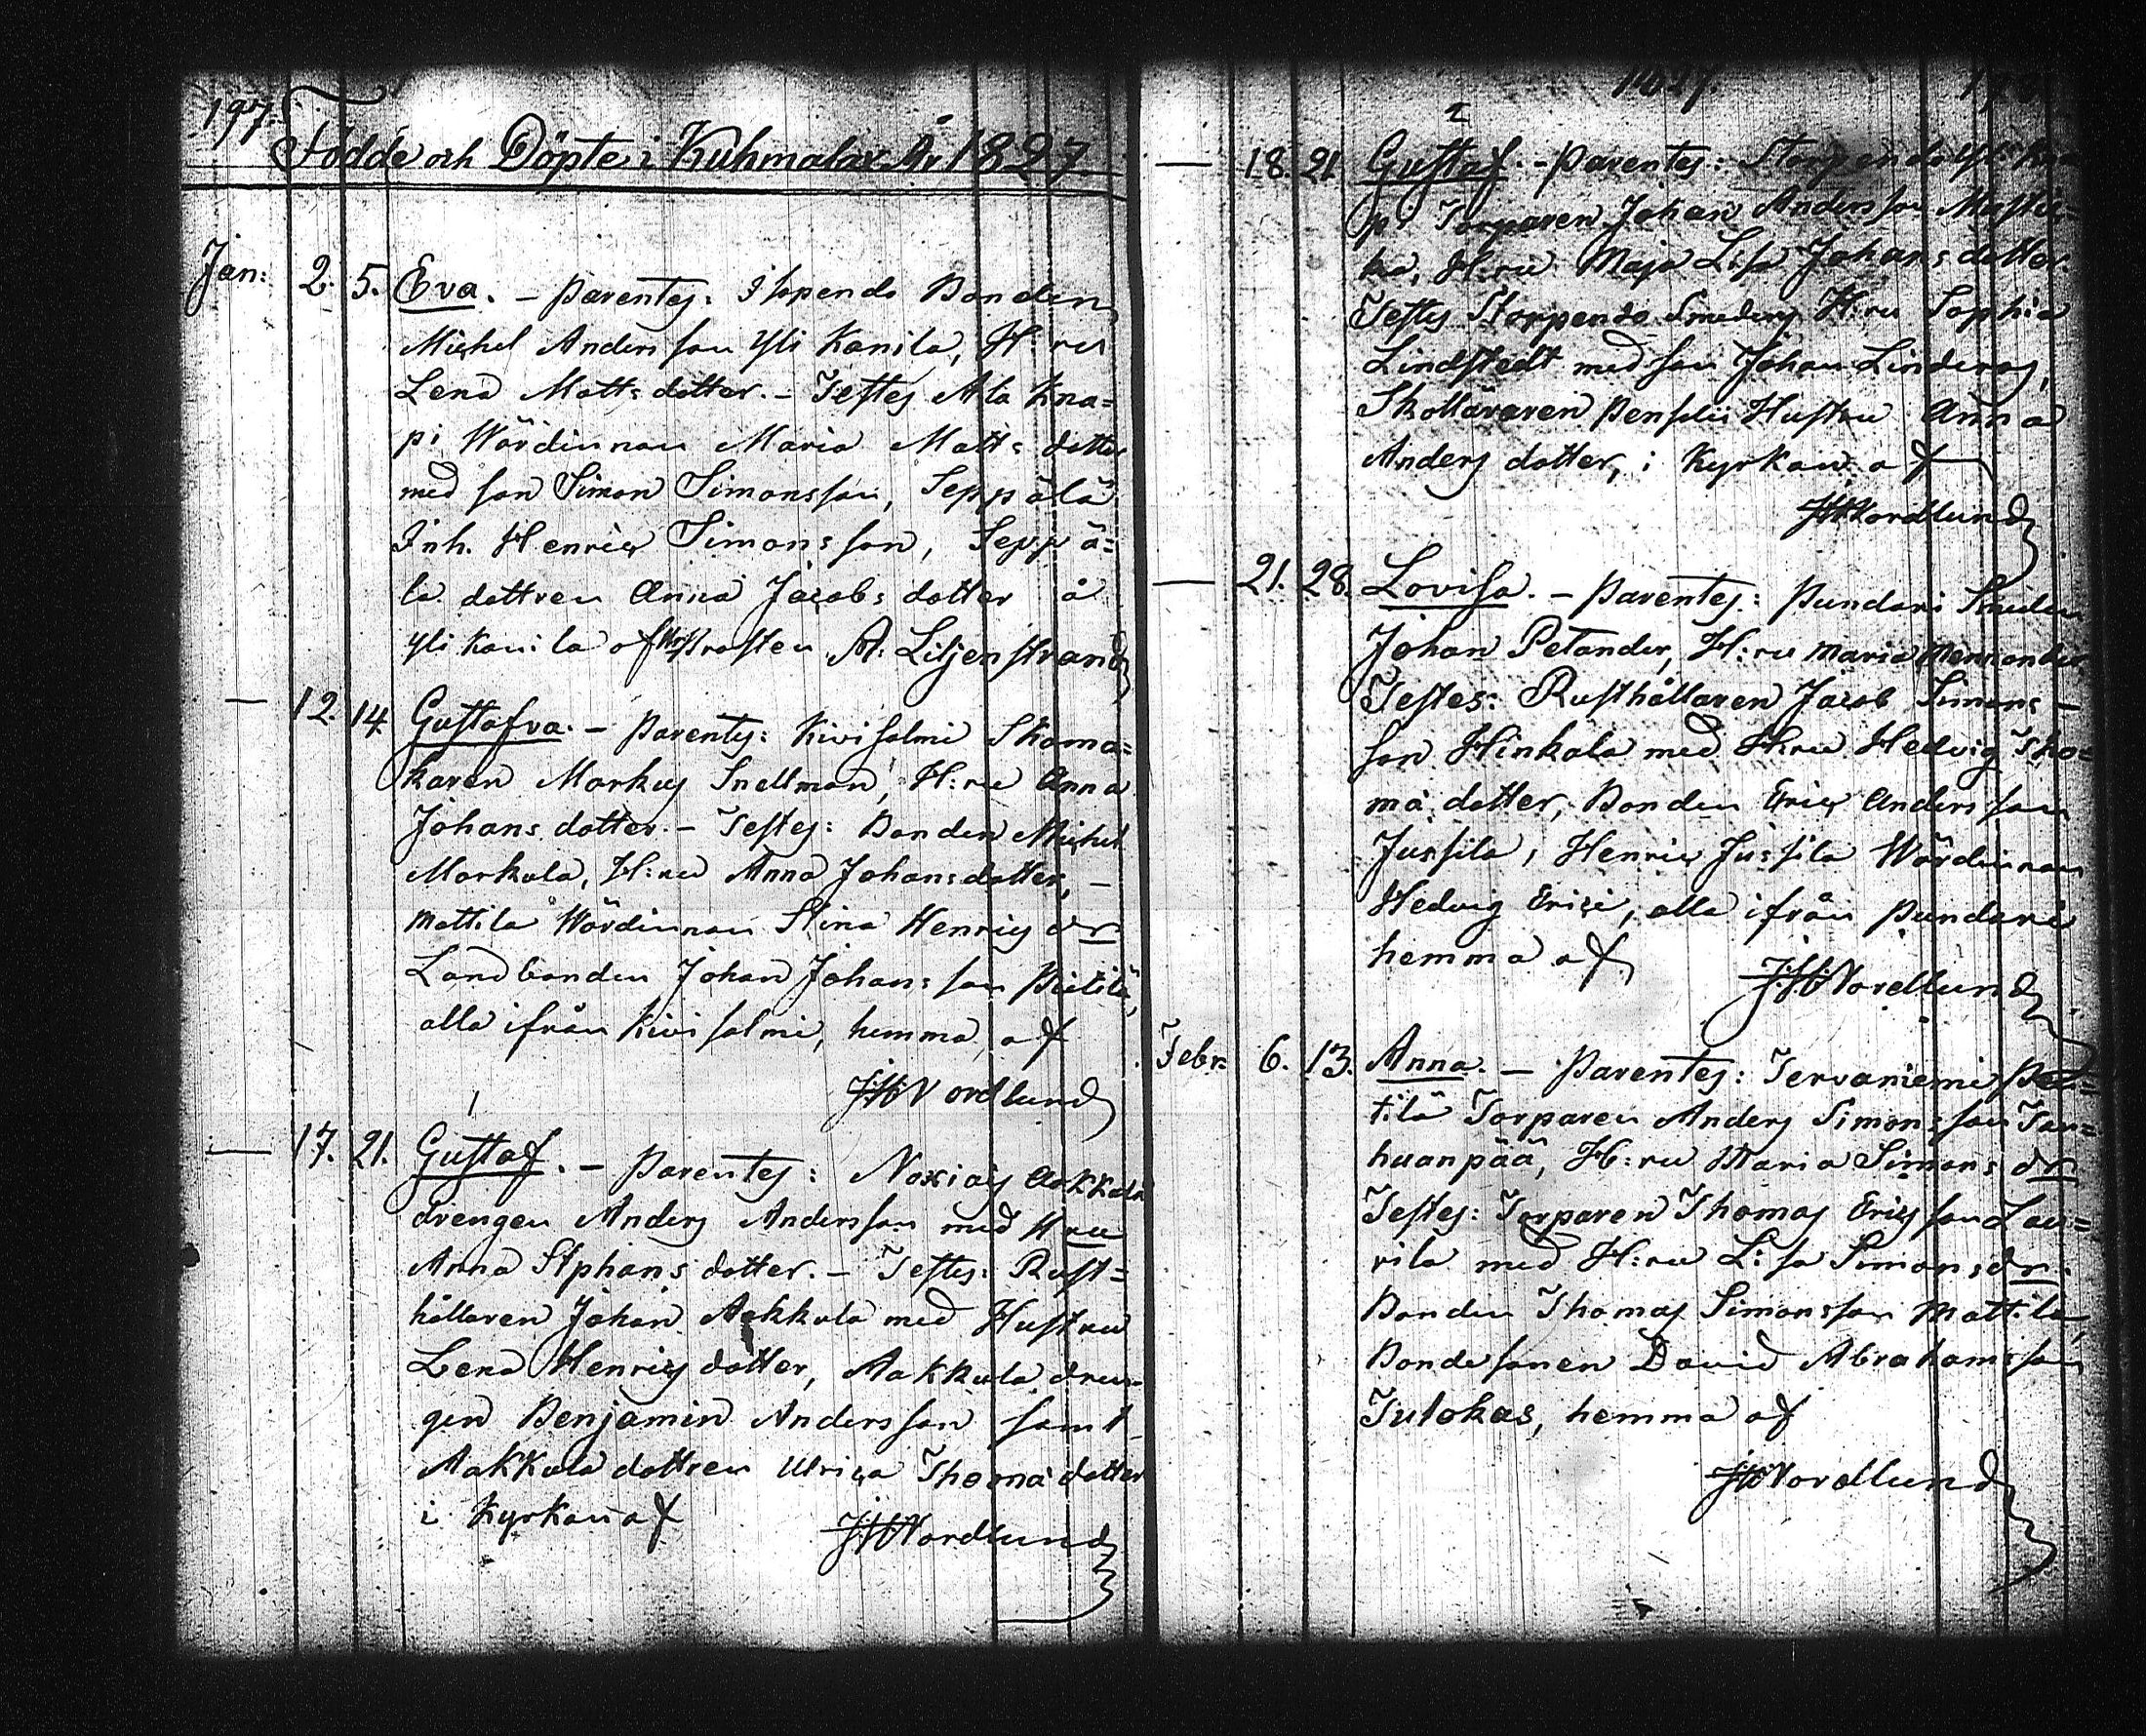 197.
Födde och Döpte i Kuhmalax År 1827.
Jan: 2. 5. Eva. - Parentes: Stopendo Bonden
Michel Andersson Yli Kanila, H:ru
Lena Matts dotter. - Testes Ala Kna=
pi Wärdinnan Maria Matts dotter
med son Simon Simonsson, Seppälä
Inh. Henric Simonsson, Seppä=
lä dottren Anna Jacobs dotter å
Yli Kanila af Prosten A. Liljenstrand
— 12. 14. Gustafva. - Parentes: Kivisalmi Skoma=
karen Markus Snellman, H:ru Anna
Johans dotter. - Testes: Bonden Michel
Markula, H:ru Anna Johansdotter, -
Mattila Wärdinnan Stina Henrics dr
Landbonden Johan Johansson Pietilä,
alla ifrån Kivisalmi, hemma, af
JHNordlund
1
— 17. 21. Gustaf. - Parentes: Noxiais Aakkula
drengen Anders Andersson med Hru
Anna Stphans dotter. - Testes: Rust=
hållaren Johan Aakkula med Hustru
Lena Henrics dotter, Aakkula dren=
gen Benjamin Andersson samt
Aakkula dottren Ulrica Thomä dotter
i Kyrkan af JHNordlund
1827.
2
— 18. 21. Gustaf. - Parentes: Storpendo Yli Kna
pi Torparen Johan Andersson Mustu=
ka, H:ru Maja Lisa Johansdotter.
Testes Storpendo Smedens H:ru Sophia
Lindstedt med son Johan Linderos,
Skolläraren Hustru Anna
Anders dotter, i Kyrkan af
JHNordlund
— 21. 28. Lovisa. - Parentes: Pundars Smeden
Johan Petander, H:ru Maria Mennander
Testes: Rusthållaren Jacob Simons-
son Hinkala med H:ru Hedvig Tho=
mä dotter, Bonden Eric Andersson
Jussila, Henric Jussila Wärdinnan
Hedvig Erici, alla ifrån Pundars
hemma af JHNordlund
Febr. 6. 13. Anna. - Parentes: Tervaniemi Pen=
tilä Torparen Anders Simonsson Tan=
huanpää, H:ru Maria Simons dr
Testes: Torparen Thomas Ericsson Lau=
rila med H:ru Lisa Simonsdr.
Bonden Thomas Simonsson Mattila,
Bondesonen David Abrahamsson
Tulokas, hemma af
JHNordlund